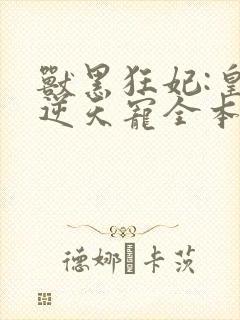 獸黑狂妃:皇
逆天寵全本
德娜 卡茨